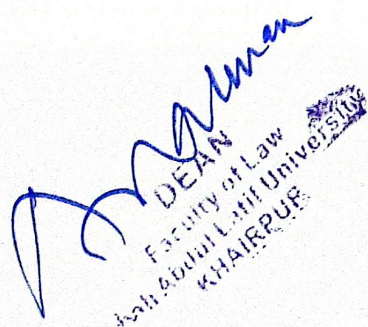 DEAN
Faculty of Law
Shah Abdul Latif University
KHAIRPUR